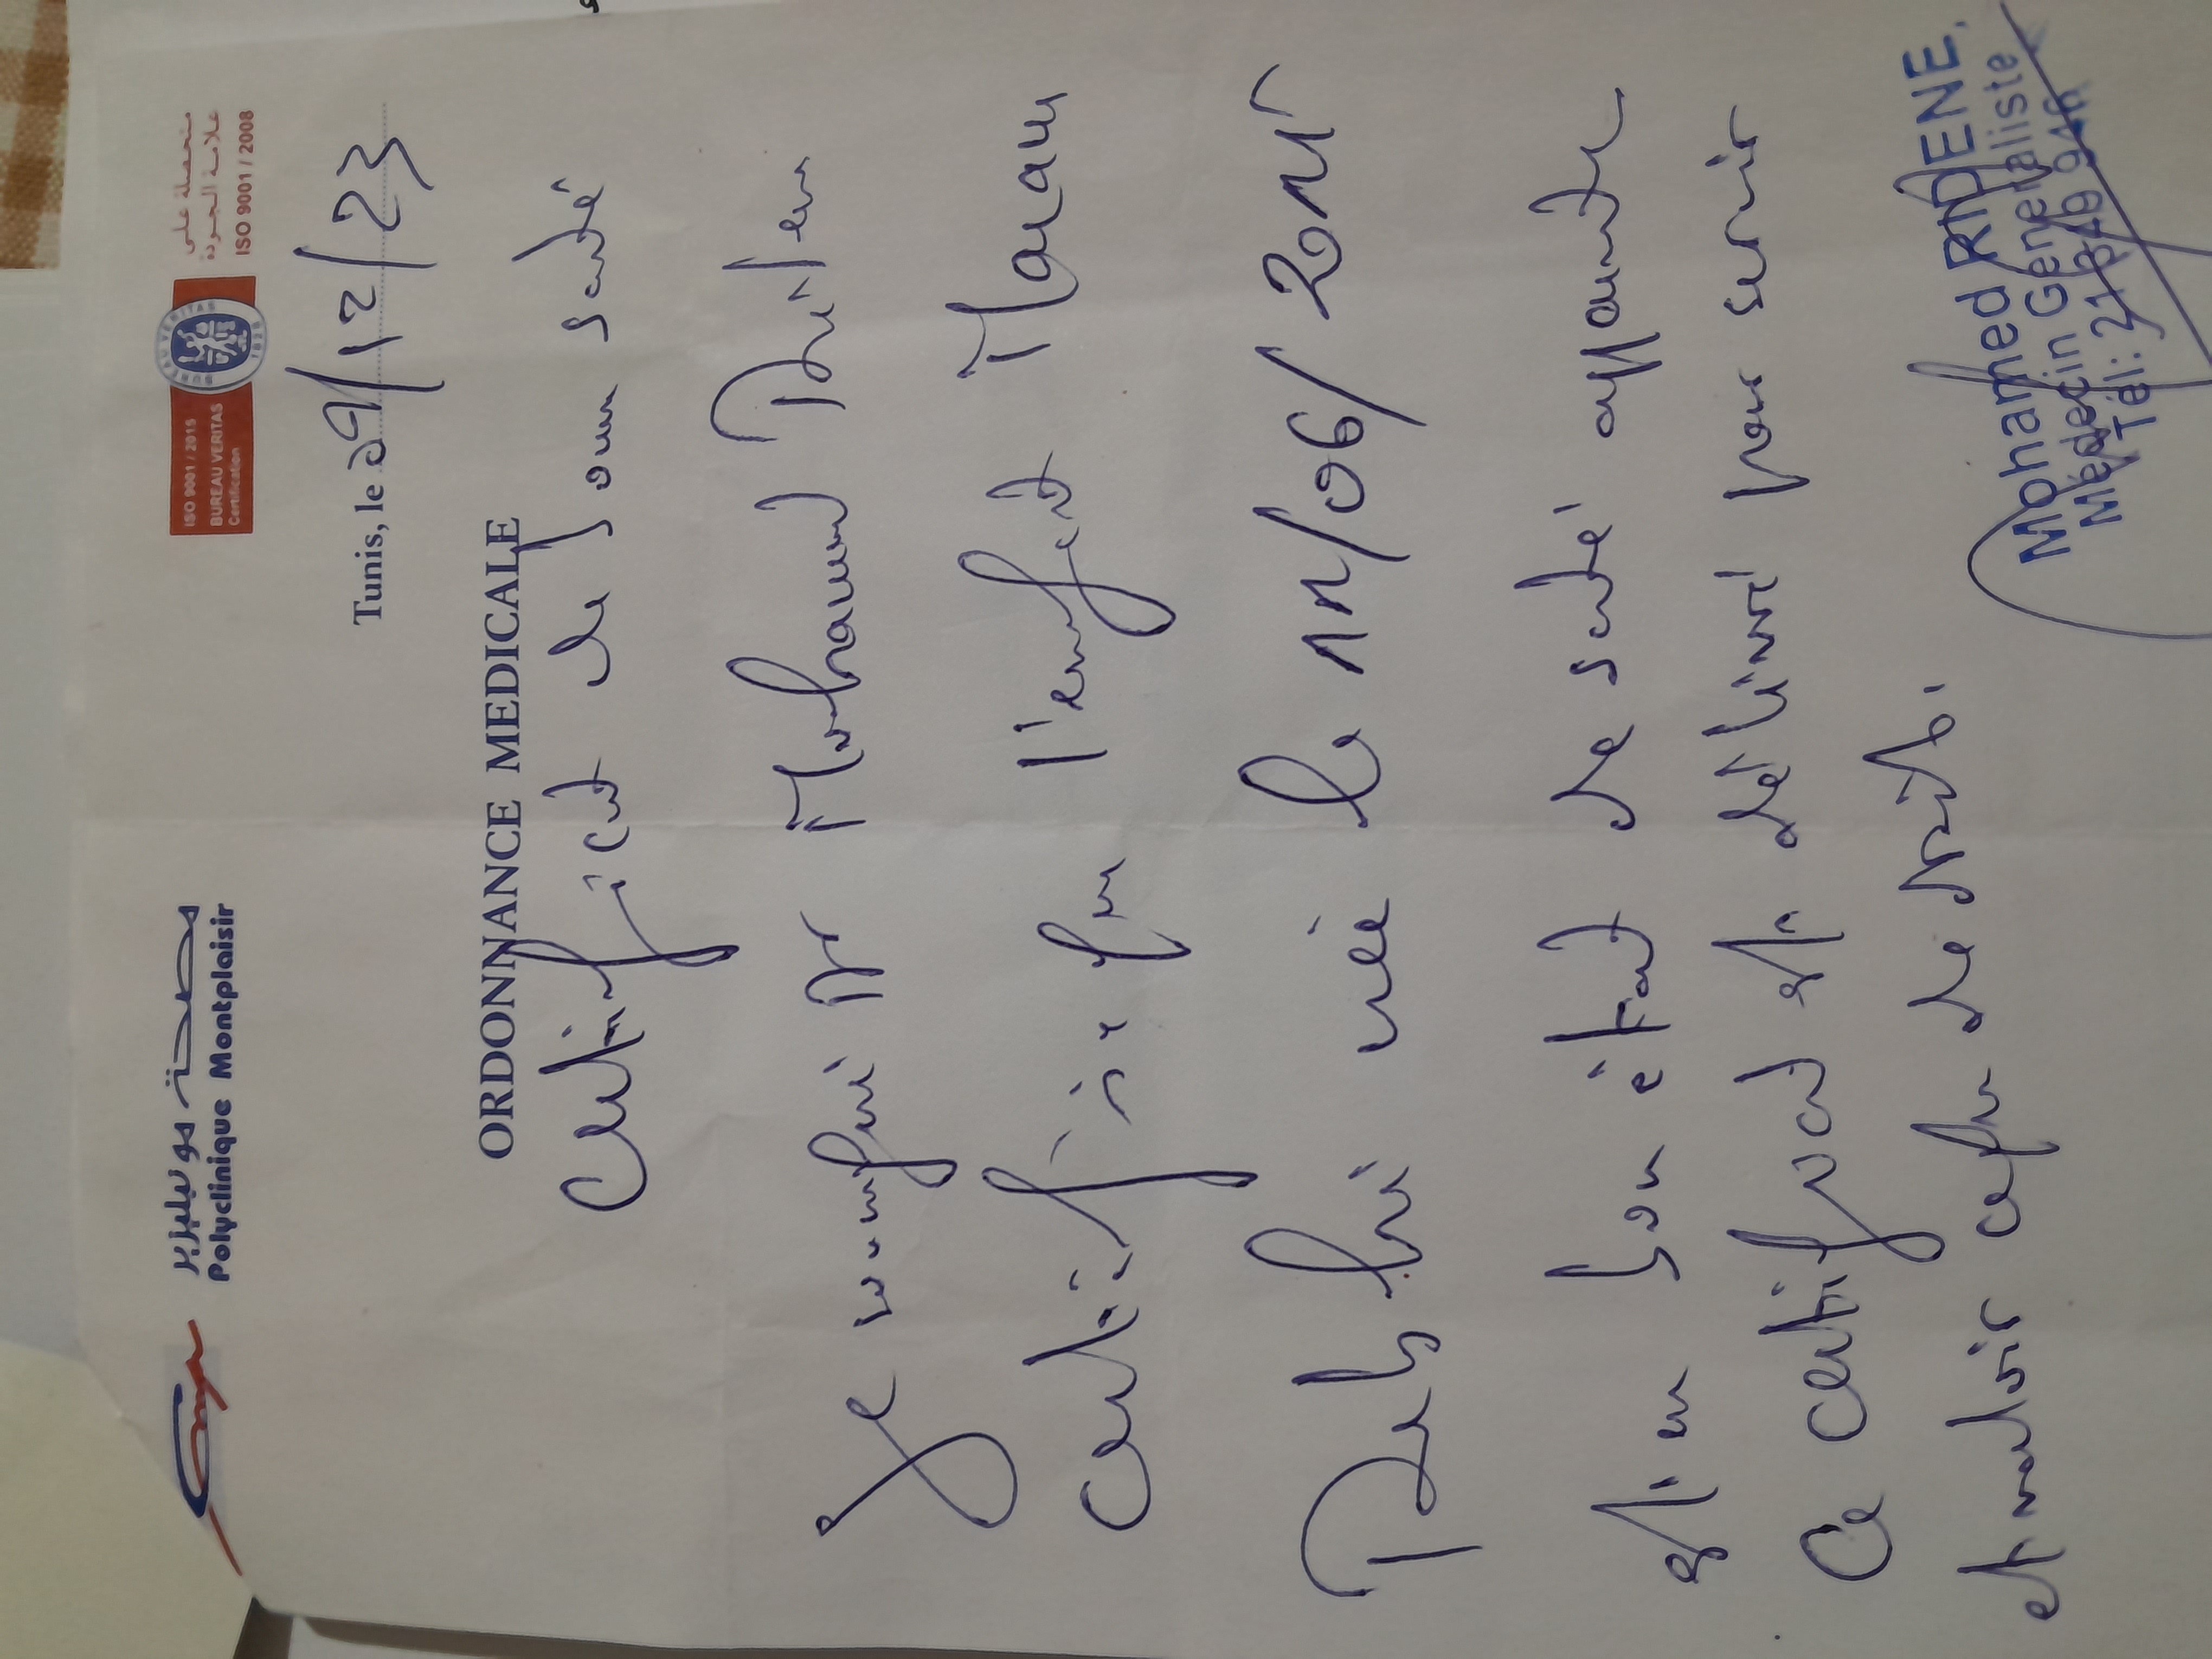 مصحة مونبليزير
Polyclinique Montplaisir
ISO 9001 / 2015
BUREAU VERITAS
Certification
BUREAU VERITAS
1828
متحصلة على
علامة الجودة
ISO 9001 / 2008
Tunis, le 29/12/23
ORDONNANCE MEDICALE
Certificat de bonne santé
Je soussigné Dr Mohamed
certifie que l'enfant Maram
née le 11/06/2015
est en bon état de santé apparente
Ce certificat est délivré pour servir
et valoir ce que de droit.
Mohamed RIDENE.
Médecin Généraliste
Tél: 21 849 940